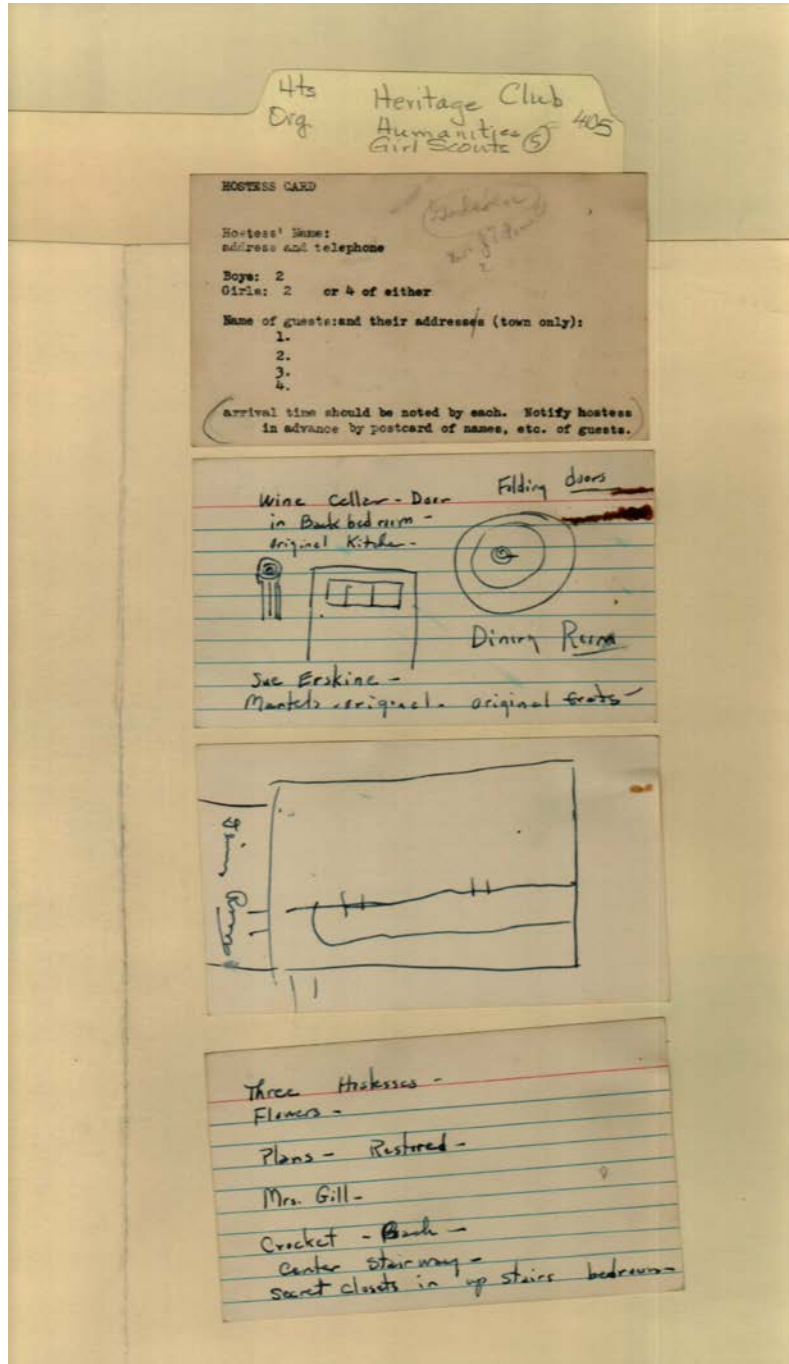 Hts Heritage Club
Org Humanities 405
Girl Scouts ⑤
HOSTESS CARD
Hostess' Name:
address and telephone
Boys: 2
Girls: 2 or 4 of either
Name of guests:and their addresses (town only):
1.
2.
3.
4.
arrival time should be noted by each. Notify hostess
in advance by postcard of names, etc. of guests.
Wine Cellar - Door
Folding doors
in Back bedroom -
original Kitchen -
Dining Room
Sue Erskine -
Mantels - original - original
Dining Room
Three Hostesses -
Flowers -
Plans - Restored -
Mrs. Gill -
Crocket - Bach -
Center Stairway -
Secret closets in up stairs bedroom -